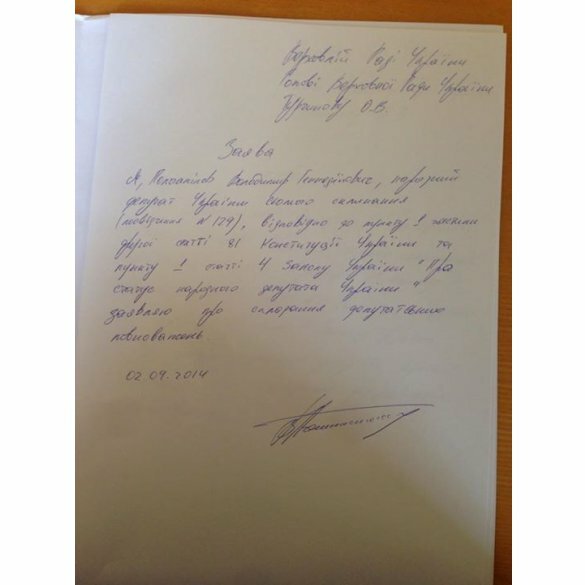 Верховній Раді України
Голові Верховної Ради України
Турчинову О.В.
Заява
Я, Володимир Геннадійович, народний
депутат України сьомого скликання
(посвідчення №129), відповідно до пункту 1 частини
другої статті 81 Конституції України та
пункту 1 статті 4 Закону України "Про
статус народного депутата України"
заявляю про складання депутатських
повноважень.
02.09.2014